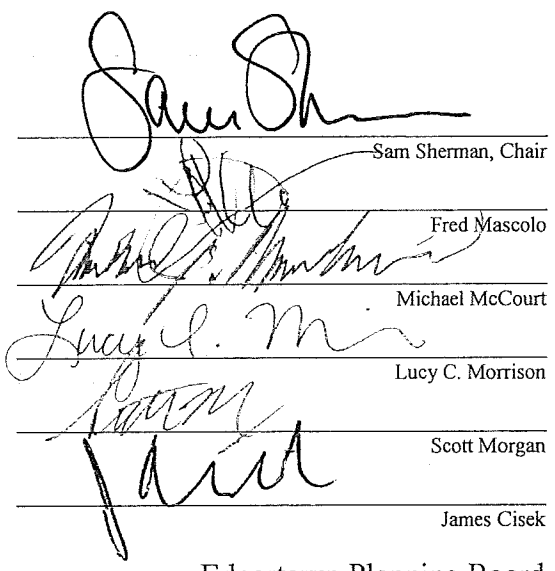 Sam Sherman
Sam Sherman, Chair
Fred Mascolo
Michael McCourt
Lucy C. Morrison
Lucy C. Morrison
Scott Morgan
James Cisek
Edgartown Planning Board